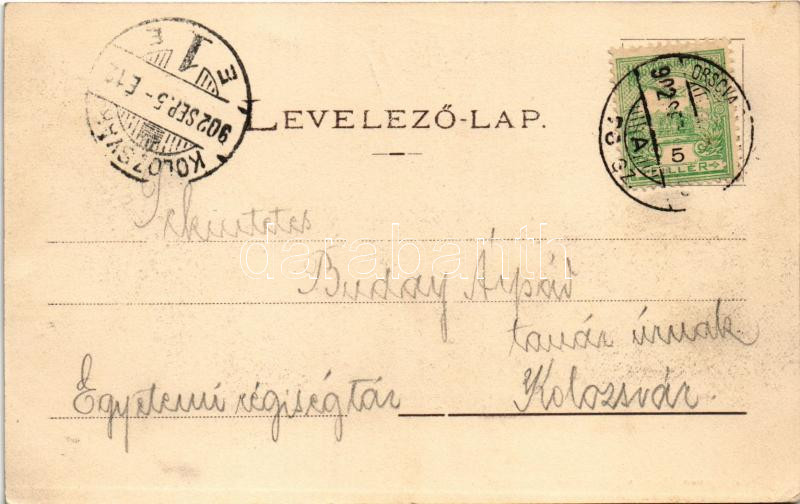 KOLOZSVÁR
902 SEP. 5
1
E
ORSOVA
902
A
5
FILLÉR
LEVELEZŐ-LAP.
Tekintetes
Buday Árpád
tanár úrnak
Egyetemi régiségtár
Kolozsvár.
darabanth